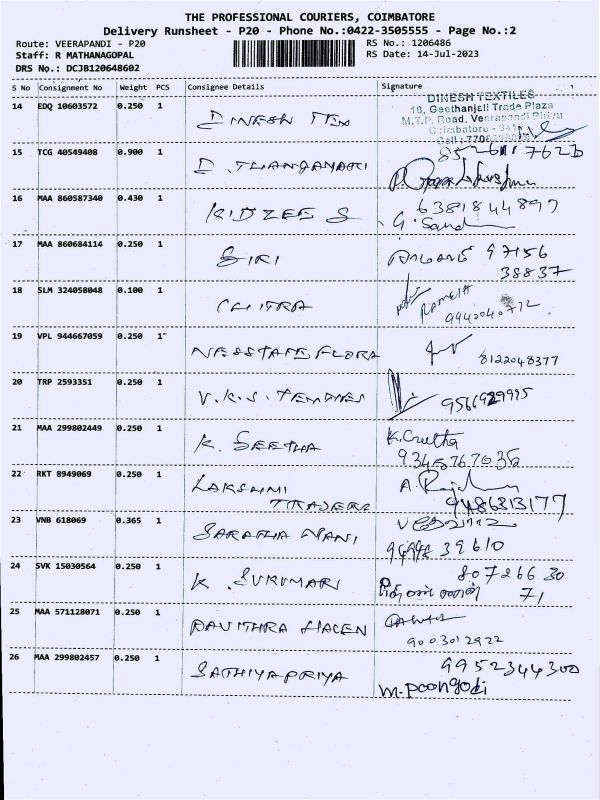 THE PROFESSIONAL COURIERS, COIMBATORE
Delivery Runsheet - P20 - Phone No.:0422-3505555 - Page No.:2
Route: VEERAPANDI - P20
RS No.: 1206486
Staff: R MATHANAGOPAL
RS Date: 14-Jul-2023
DRS No.: DCJB120648602
S No Consignment No Weight PCS Consignee Details Signature
DINESH TEXTILES
18, Geethanjali Trade Plaza
M.T.P. Road, Veerapandi Pirivu
14 EDQ 10603572 0.250 1 DINESH TEX
15 TCG 40549408 0.900 1 D. THANGAMARI
16 MAA 860587340 0.430 1 KIDZEE S 6381844897
G. Sand
17 MAA 860684114 0.250 1 SIRI 97156
38837
18 SLM 324058048 0.100 1 CHITRA RAMESH
9942040772
19 VPL 944667059 0.250 1 NESSTAFE FLORA
8122048377
20 TRP 2593351 0.250 1 V.K.S.
9566929995
21 MAA 299802449 0.250 1 K. SEETHA
9345767036
22 RKT 8949069 0.250 1 LAKSHMI A.
9486813177
23 VNB 618069 0.365 1 SARATHA MANI
39610
24 SVK 15030564 0.250 1 K. SUKUMARI 807266 30
71
25 MAA 571128071 0.250 1 PAVITHRA
9003012922
26 MAA 299802457 0.250 1 SATHIYAPRIYA 9952344300
M. Poongodi